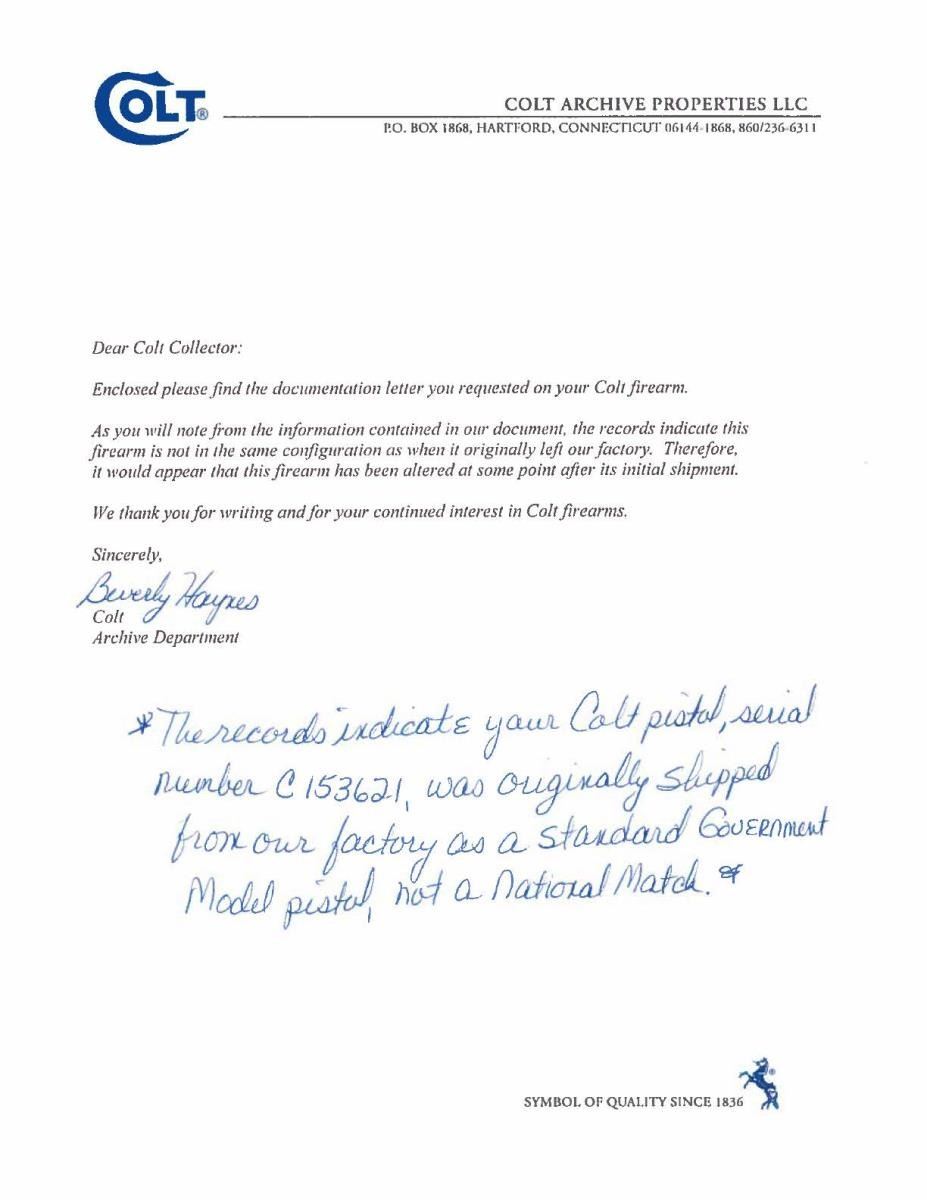 COLT®
COLT ARCHIVE PROPERTIES LLC
P.O. BOX 1868, HARTFORD, CONNECTICUT 06144-1868, 860/236-6311
Dear Colt Collector:
Enclosed please find the documentation letter you requested on your Colt firearm.
As you will note from the information contained in our document, the records indicate this
firearm is not in the same configuration as when it originally left our factory. Therefore,
it would appear that this firearm has been altered at some point after its initial shipment.
We thank you for writing and for your continued interest in Colt firearms.
Sincerely,
Beverly Haynes
Colt
Archive Department
*The records indicate your Colt pistol, serial
number C 153621, was originally shipped
from our factory as a standard Government
Model pistol, not a National Match.
SYMBOL OF QUALITY SINCE 1836
®